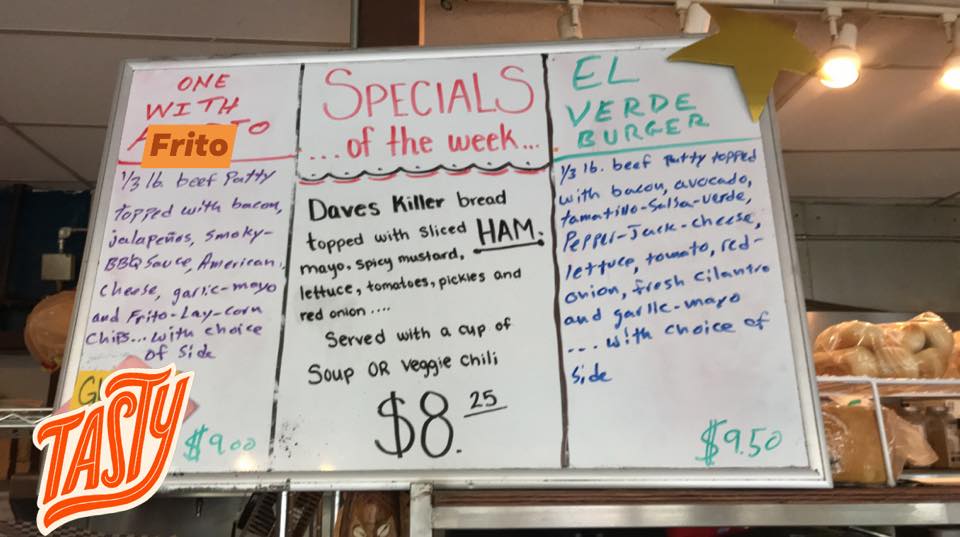 ONE
WITH
Frito
1/3 lb. beef Patty
topped with bacon,
jalapeños, Smoky-
BBQ Sauce, American
Cheese, garlic-mayo
and Frito-Lay-corn
Chips... with choice
of Side
$9.00
TASTY
SPECIALS
...of the week...
Daves Killer bread
topped with Sliced HAM.
mayo, spicy mustard,
lettuce, tomatoes, pickles and
red onion ....
Served with a cup of
Soup OR Veggie Chili
$8.25
EL
VERDE
BURGER
1/3 lb. beef Patty topped
with bacon, avocado,
tamatillo-Salsa-verde,
Pepper-Jack-cheese,
lettuce, tomato, red-
onion, fresh cilantro
and garlic-mayo
.... with choice of
Side
$9.50